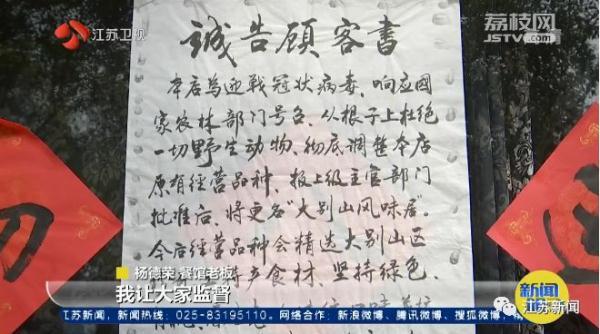 江苏卫视
荔枝网
JSTV.com
诚告顾客书
本店为迎战冠状病毒、响应国
家农林部门号召、从根子上杜绝
一切野生动物、彻底调整本店
原有经营品种、报上级主管部门
批准后、将更名“大别山风味居”。
今后经营品种会精选大别山区
产食材、坚持绿色、
杨德荣 餐馆老板
我让大家监督
新闻
江苏新闻、新闻热线：025-83195110、网络合作：新浪微博、腾讯微博、搜狐微博
江苏新闻